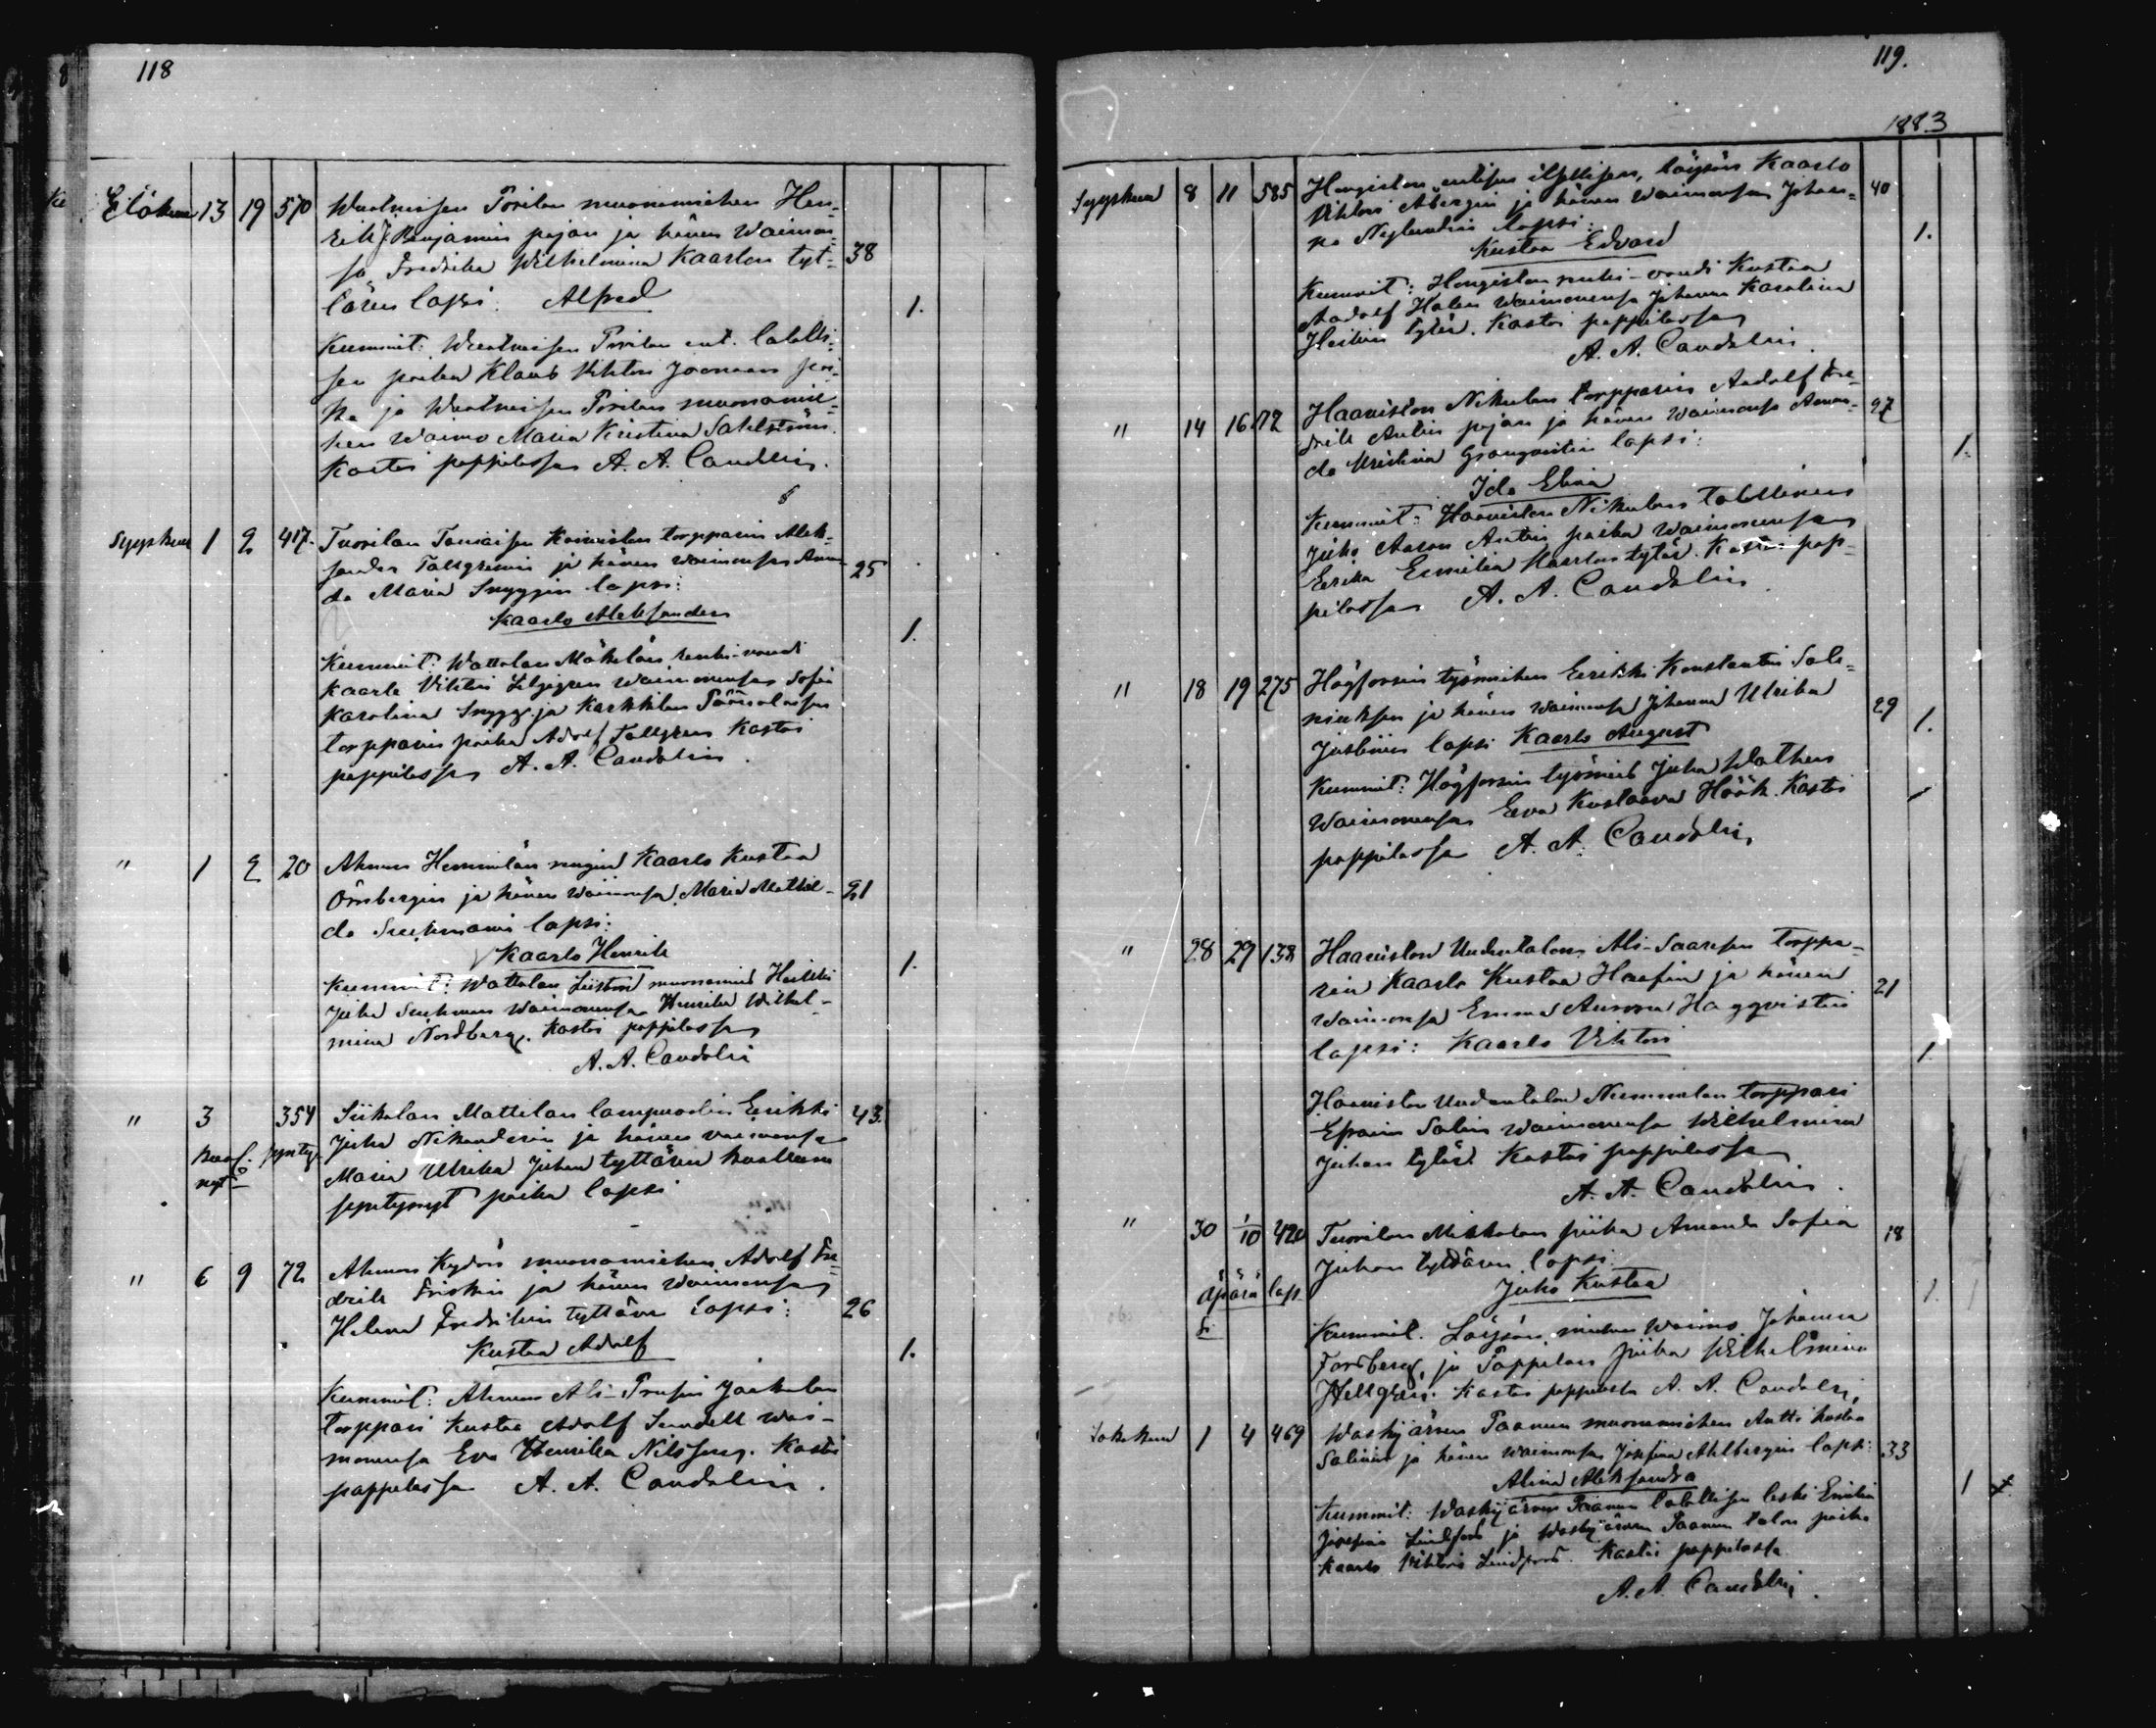 118
Elokuu 13 19 570 Wuotnaisen Torilan muonamiehen Hen-
rik Benjamin pojan ja hänen Waimon-
sa Fredrika Wilhelmina Kaarlon tyt- 38
tären lapsi. Alfred
1.
Kummit: Wuotnaisen Torilan ent. talolli-
sen poika Klaus Viktor Joonaan poi-
ka ja Wuotnaisen Torilan muonamie-
hen Waimo Maria Kristina Sahlström.
Kastoi pappilassa A. A. Candolin.
Syyskuu 1 2 417. Tuorilan Tomaisen Koiviston torpparin Alek-
sander Tallgrenin ja hänen Waimonsa Aman- 25
da Maria Snyggin lapsi:
Kaarlo Aleksander
1.
Kummit: Wattolan Mäkelän renki-vouti
Kaarle Viktor Liljegren Waimonensa Sofia
Karolina Snygg ja Karkkilan
torpparin poika Adolf Tallgren Kastoi
pappilassa A. A. Candolin
" 1 2 20 Ahmon Hemmilän rengin Kaarlo Kustaa
Örnbergin ja hänen Waimonsa Maria Mathil- 21
da Suckmanin lapsi:
Kaarlo Henrik
1.
Kummit: Wattolan muonamies Heikki
Juha Suckman Waimonensa Henrika Wilhel-
mina Nordberg. Kastoi pappilassa
A. A. Candolin
" 3 354 Siikalan Mattilan lampuodin Eerikki 43.
Juha Nikanderin ja hänen vaimonsa
Maria Ulrika Juhan tyttären kuolleena
syntynyt poika lapsi
" 6 9 72 Ahmon Kydön muonamiehen Adolf Fre-
drik Friskin ja hänen Waimonsa
Helena Fredrikin tyttären lapsi: 26
Kustaa Adolf
1.
Kummit: Ahmon Ali-Prusin Jaakolan
torppari Kustaa Adolf Sundell Wai-
monensa Eva Henrika Nilsson. Kastoi
pappilassa A. A. Candolin.
119.
1883
Syyskuu 8 11 585 Hongiston entisen itsellisen, löysän Kaarlo 40
Viktor Åbergin ja hänen Waimonsa Johan-
na Nylundin lapsi:
1.
Kustaa Edvard
Kummit: Hongiston renki-vouti Kustaa
Aadolf Halen Waimonensa Johanna Karolina
Heikin tytär. Kastoi pappilassa
A. A. Candolin.
" 14 16 172 Haaviston Nikulan torpparin Aadolf Fre- 27
drik Antin pojan ja hänen Waimonsa Aman-
da Kristina Granqvistin lapsi:
1.
Ida Elina
Kummit: Haaviston Nikulan talollinen
Juho Aaron Antin poika Waimonensa
Eerika Emilia Kaarlon tytär. Kastoi pap-
pilassa A. A. Candolin
" 18 19 275 Högforsin työmiehen Eerikki Konstantin Salo-
niuksen ja hänen Waimonsa Johanna Ulrika 29
Juslinin lapsi Kaarlo August
1.
Kummit: Högforsin työmies Juha Wathen
Waimonensa Eeva Kustaava Höök. Kastoi
pappilassa A. A. Candolin
" 28 29 138 Haaviston Uudentalon Ali-Saaresen torppa-
rin Kaarlo Kustaa Haafin ja hänen
Waimonsa Emma Aurora Haggqvistin 21
lapsi: Kaarlo Viktor
1
Haaviston Uudentalon Nummelan torppari
Efraim Salin Waimonensa Wilhelmina
Juhan tytär. Kastoi pappilassa
A. A. Candolin.
" 30 1/10 420 Tuorilan Mikkolan piika Amanda Sofia 18
Juhan tyttären lapsi
Äpärä lap
si
Juho Kustaa
1.
Kummit. Löysän miehen Waimo Johanna
Forsberg, ja Pappilan piika Wilhelmina
Hellgren. Kastoi pappilassa A. A. Candolin,
Lokakuu 1 4 469 Waskijärven Paanun muonamiehen Antti Kustaa
Salinin ja hänen Waimonsa Josefina Ahlbergin lapsi: 33
Alina Aleksandra
1
Kummit: Waskijärven Paanun talollisen leski Emilia
Josefina Lindfors ja Waskijärven Paanun talon poika
Kaarlo Viktor Lindfors. Kastoi pappilassa
A. A. Candolin.